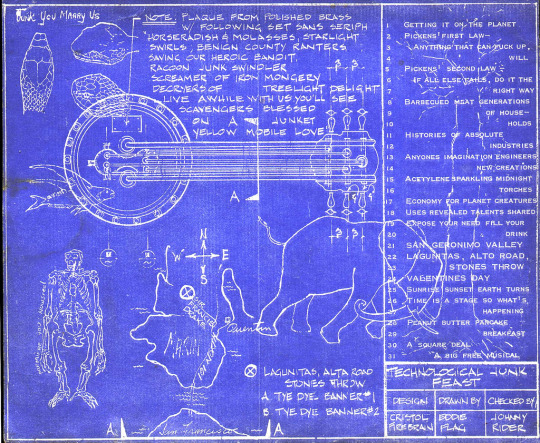 Thunk You Marry Us
NOTE: PLAQUE FROM POLISHED BRASS
W/ FOLLOWING SET SANS SERIPH
HORSERADISH & MOLASSES, STARLIGHT
SWIRLS, BENIGN COUNTY RANTERS
SAVING OUR HEROIC BANDIT.
RACOON JUNK SWINDLER
SCREAMER OF IRON MONGERY
DECRYERS OF TREELIGHT DELIGHT
LIVE AWHILE WITH US YOU'LL SEE
SCAVENGERS BLESSED
ON A JUNKET
YELLOW MOBILE LOVE
A
N
W E
S
MARIN
Quentin
San Francisco
A A
LAGUNITAS, ALTA ROAD
STONES THROW
A TYE DYE BANNER#1
B TYE DYE BANNER#2
1 GETTING IT ON THE PLANET
2 PICKENS' FIRST LAW-
3 ANYTHING THAT CAN FUCK UP,
4 WILL
5 PICKENS' SECOND LAW-
6 IF ALL ELSE FAILS, DO IT THE
7 RIGHT WAY
8 BARBECUED MEAT GENERATIONS
9 OF HOUSE-
10 HOLDS
11 HISTORIES OF ABSOLUTE
12 INDUSTRIES
13 ANYONES IMAGINATION ENGINEERS
14 NEW CREATIONS
15 ACETYLENE SPARKLING MIDNIGHT
16 TORCHES
17 ECONOMY FOR PLANET CREATURES
18 USES REVEALED TALENTS SHARED
19 EXPOSE YOUR NEED FILL YOUR
20 DRINK
21 SAN GERONIMO VALLEY
22 LAGUNITAS, ALTO ROAD,
23 STONES THROW
VALENTINES DAY
SUNRISE SUNSET EARTH TURNS
TIME IS A STAGE SO WHAT'S
HAPPENING
28 PEANUT BUTTER PANCAKE
29 BREAKFAST
30 A SQUARE DEAL
31 A BIG FREE MUSICAL
TECHNOLOGICAL JUNK
FEAST
DESIGN DRAWN BY CHECKED BY
CRISTOL EDDIE JOHNNY
FIREBRAIN FLAG RIDER